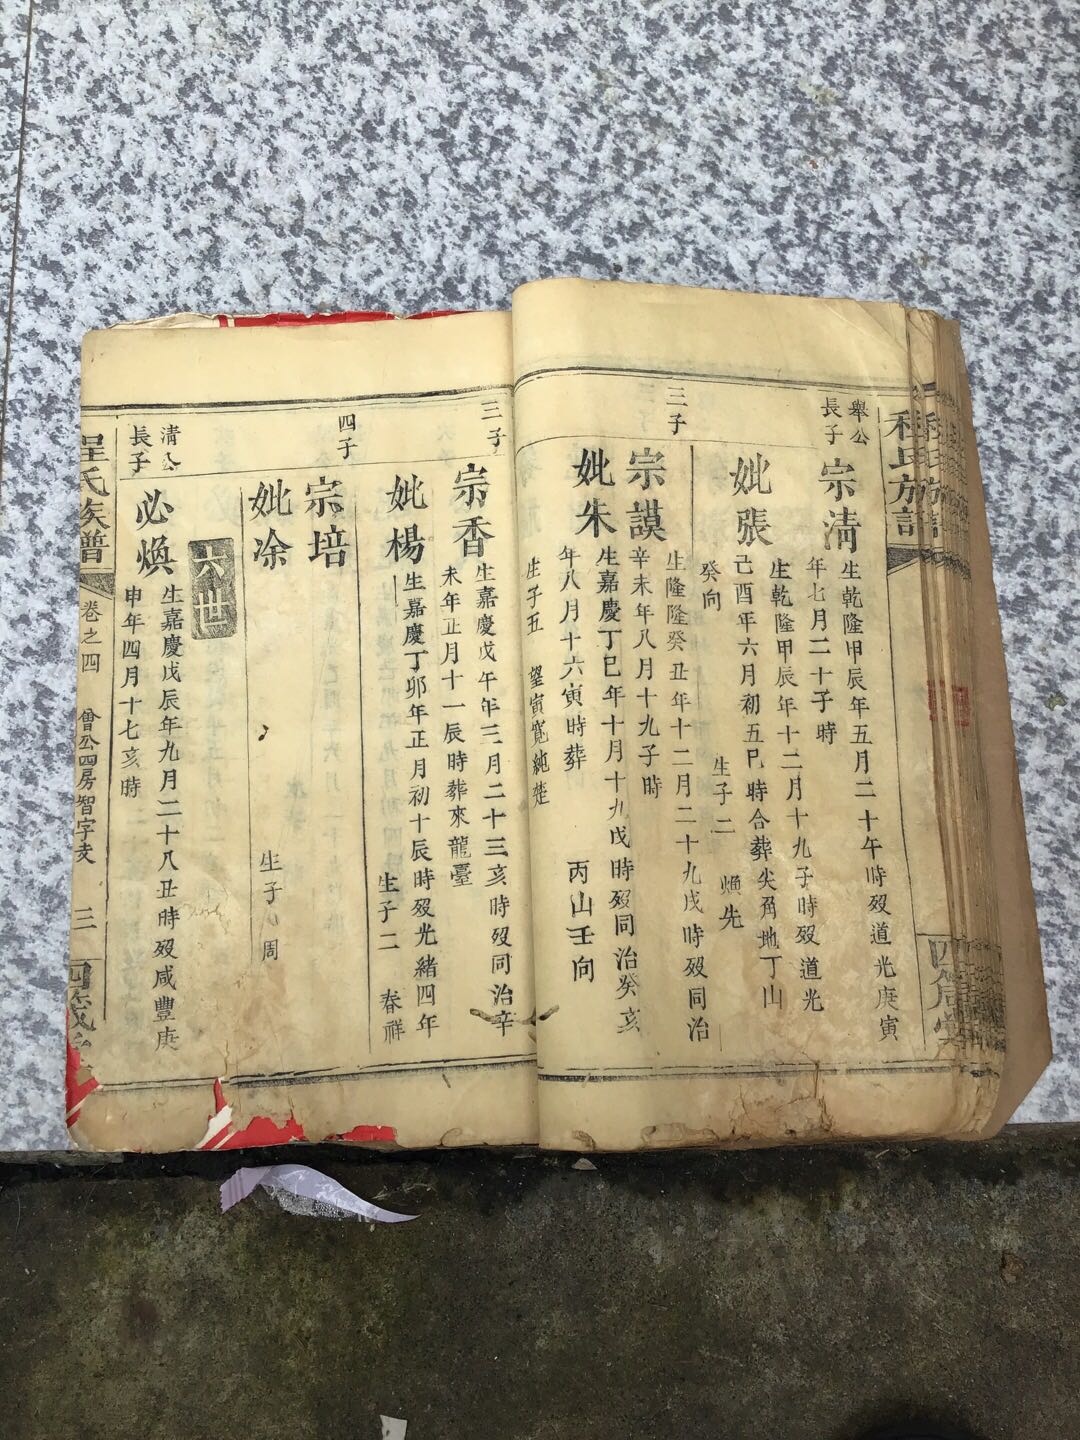 程氏族譜
舉公
長子
宗淸
生乾隆甲辰年五月二十午時歿道光庚寅
年七月二十子時
妣張
生乾隆甲辰年十二月十九子時歿道光
己酉年六月初五巳時合葬尖角地丁山
癸向
生子二
煥先
三子
宗謨
生隆隆癸丑年十二月二十九戌時歿同治
辛未年八月十九子時
妣朱
生嘉慶丁巳年十月十九戌時歿同治癸亥
年八月十六寅時葬
丙山壬向
生子五
望寅寬純楚
三子
宗香
生嘉慶戊午年三月二十三亥時歿同治辛
未年正月十一辰時葬來龍臺
妣楊
生嘉慶丁卯年正月初十辰時歿光緒四年
生子二
春祥
四子
宗培
妣凃
生子
周
六世
清公
長子
必煥
生嘉慶戊辰年九月二十八丑時歿咸豐庚
申年四月十七亥時
程氏族譜
卷之四
曾公四房智字支
三